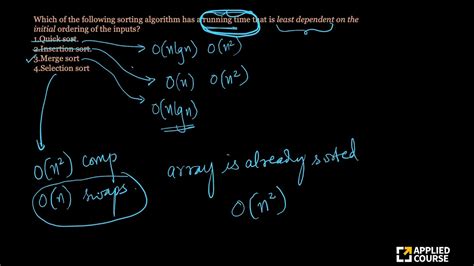 Which of the following sorting algorithm has a running time that is least dependent on the
initial ordering of the inputs?
1.Quick sort
2.Insertion sort
3.Merge sort
4.Selection sort
O(nlgn) O(n²)
O(n) O(n²)
O(nlgn)
O(n²) comp
O(n) swaps
array is already sorted
O(n²)
APPLIED
COURSE